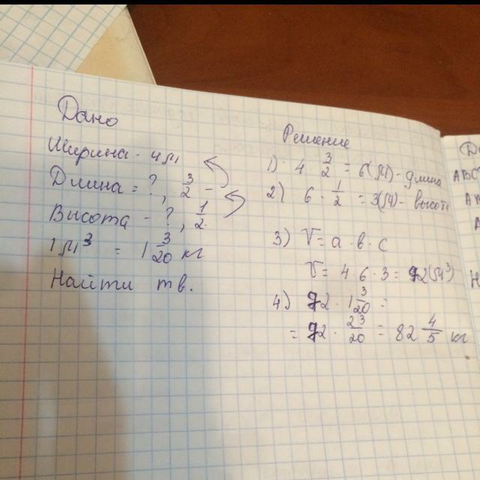 Дано
Ширина - 4м
Длина = ?, 3/2
Высота - ?, 1/2
1м³ = 1 3/20 кг
Найти m в.
Решение
1) 4 · 3/2 = 6(м) - длина
2) 6 · 1/2 = 3(м) - высота
3) V = a · b · c
V = 4 · 6 · 3 = 72(м³)
4) 72 · 1 3/20 =
= 72 · 23/20 = 82 4/5 кг